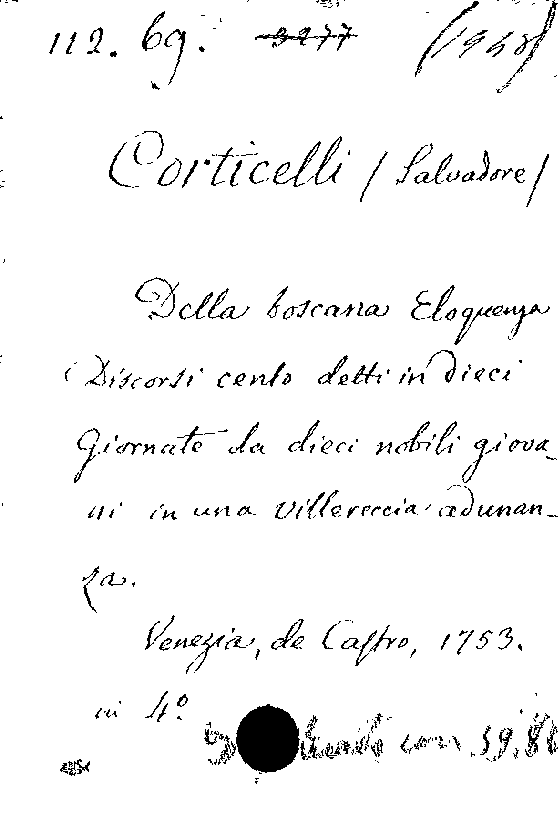 112. 69. 3277 (1948)
Corticelli / Salvadore /
Della toscana Eloquenza
Discorsi cento detti in dieci
Giornate da dieci nobili giova-
ni in una villereccia adunan-
za.
Venezia, de Castro, 1753.
in 4º
con 59.